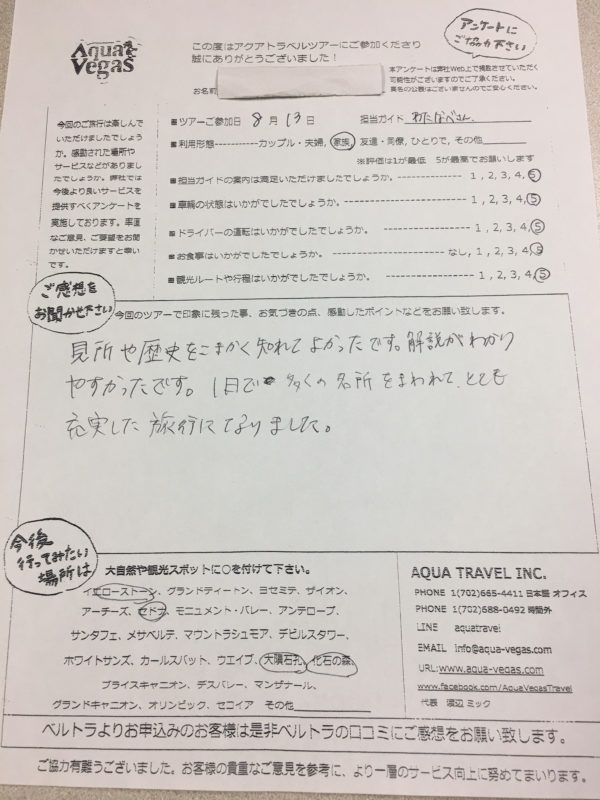 Aqua Vegas
この度はアクアトラベルツアーにご参加くださり
誠にありがとうございました！
アンケートに
ご協力下さい
お名前
本アンケートは弊社Web上で掲載させていただく
可能性がございますのでご了承ください。
真名の公表はございませんのでご安心ください。
今回のご旅行は楽しんで
いただけましたでしょう
か。感動された場所や
サービスなどがありまし
たでしょうか。弊社では
今後より良いサービスを
提供すべくアンケートを
実施しております。率直
なご意見、ご要望をお聞
かせいただけますと幸い
です。
■ツアーご参加日 8 月 13 日 担当ガイド わたなべさん
■利用形態------------カップル・夫婦, 家族, 友達・同僚, ひとりで, その他
※評価は1が最低 5が最高でお願いします
■担当ガイドの案内は満足いただけましたでしょうか。 ---------------- 1, 2, 3, 4, 5
■車輌の状態はいかがでしたでしょうか。 ---------------- 1, 2, 3, 4, 5
■ドライバーの運転はいかがでしたでしょうか。 ---------------- 1, 2, 3, 4, 5
■お食事はいかがでしたでしょうか。 ---------------- なし, 1, 2, 3, 4, 5
■観光ルートや行程はいかがでしたでしょうか。 ---------------- 1, 2, 3, 4, 5
ご感想を
お聞かせ下さい
今回のツアーで印象に残った事、お気づきの点、感動したポイントなどをお願い致します。
見所や歴史をこまかく知れてよかったです。解説がわかり
やすかったです。1日で多くの名所をまわれて、とても
充実した旅行になりました。
今後
行ってみたい
場所は
大自然や観光スポットに○を付けて下さい。
イエローストーン、グランドティートン、ヨセミテ、ザイオン、
アーチーズ、セドナ、モニュメント・バレー、アンテロープ、
サンタフェ、メサベルデ、マウントラシュモア、デビルスタワー、
ホワイトサンズ、カールスバット、ウエイブ、大隕石孔、化石の森、
ブライスキャニオン、デスバレー、マンザナール、
グランドキャニオン、オリンピック、セコイア その他
AQUA TRAVEL INC.
PHONE 1(702)665-4411 日本語 オフィス
PHONE 1(702)688-0492 時間外
LINE aquatravel
EMAIL info@aqua-vegas.com
URL:www.aqua-vegas.com
www.facebook.com/AquaVegasTravel
代表 渡辺 ミック
ベルトラよりお申込みのお客様は是非ベルトラの口コミにご感想をお願い致します。
ご協力有難うございました。お客様の貴重なご意見を参考に、より一層のサービス向上に努めてまいります。